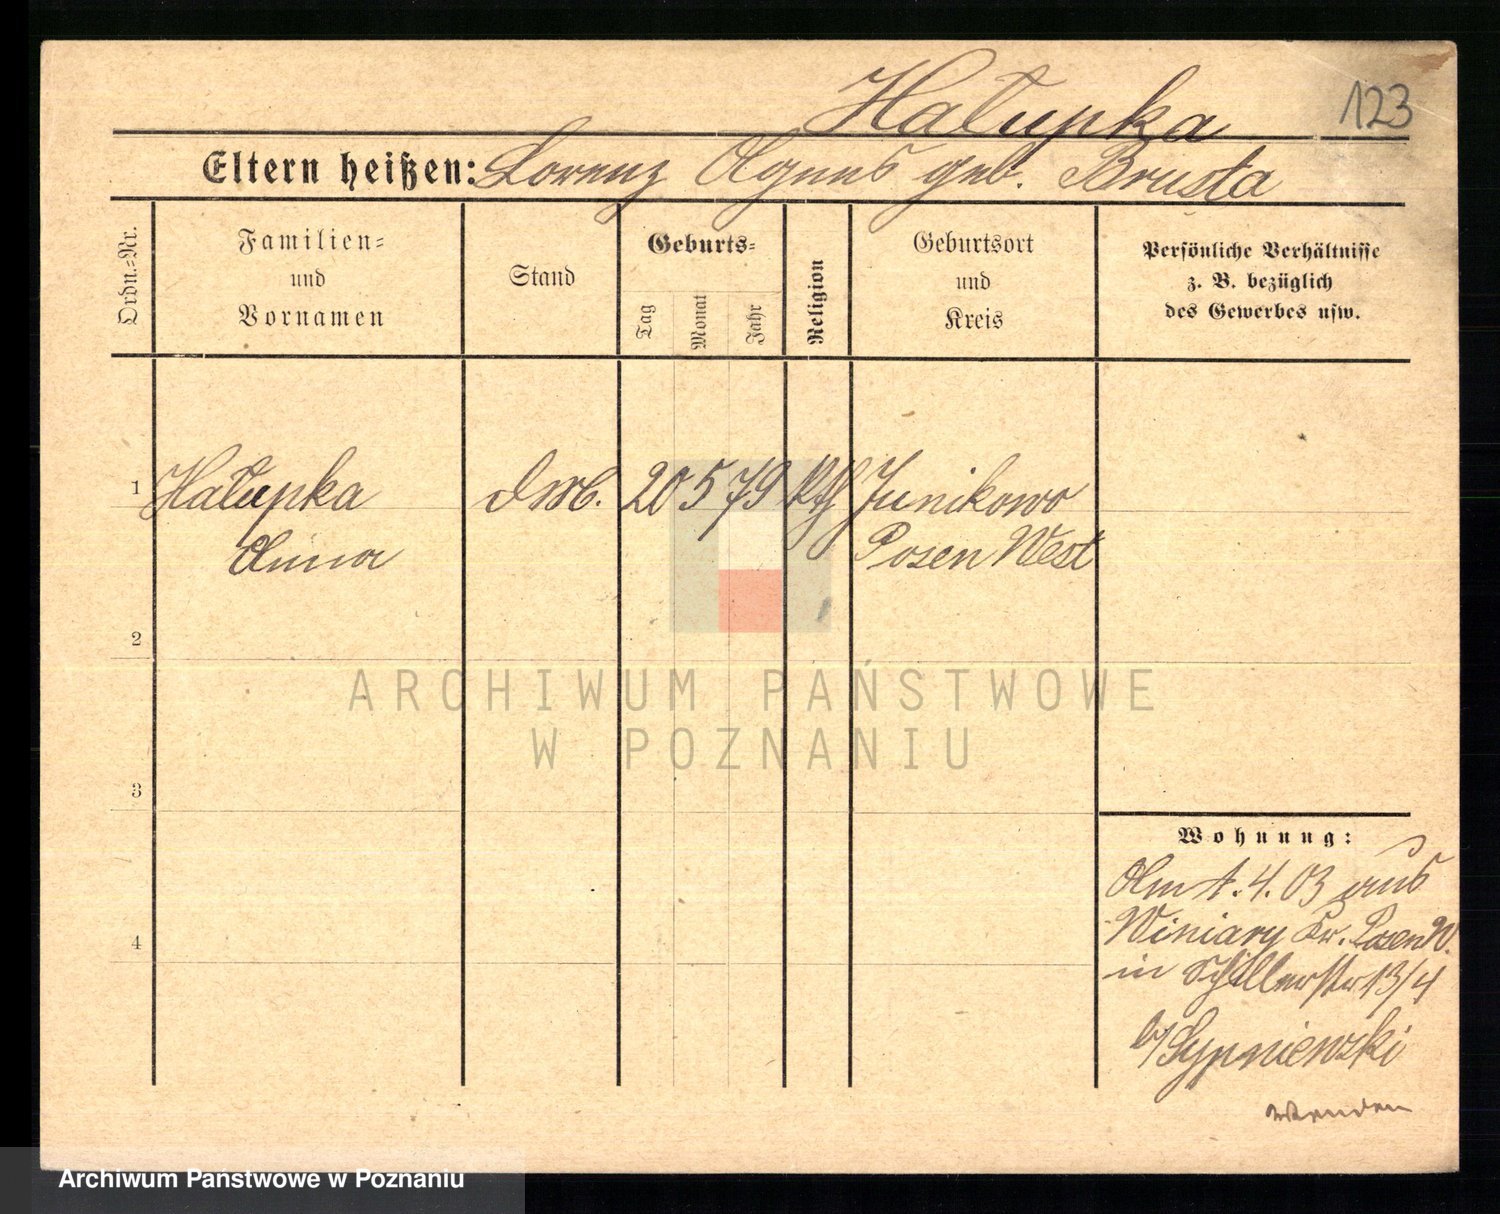 Hałupka
123
Eltern heißen: Lorenz Agnes geb. Brusta
Ordn.-Nr.
Familien-
und
Vornamen
Stand
Geburts-
Tag
Monat
Jahr
Religion
Geburtsort
und
Kreis
Persönliche Verhältnisse
z. B. bezüglich
des Gewerbes usw.
1 Hałupka 20 5 79 kth Junikowo
Anna Posen West
2
ARCHIWUM PAŃSTWOWE
W POZNANIU
3
Wohnung:
Am 1.4.03 aus
Winiary Kr. Posen W.
4
in Schillerstr 13/4
b/Sypniewski
wenden
Archiwum Państwowe w Poznaniu